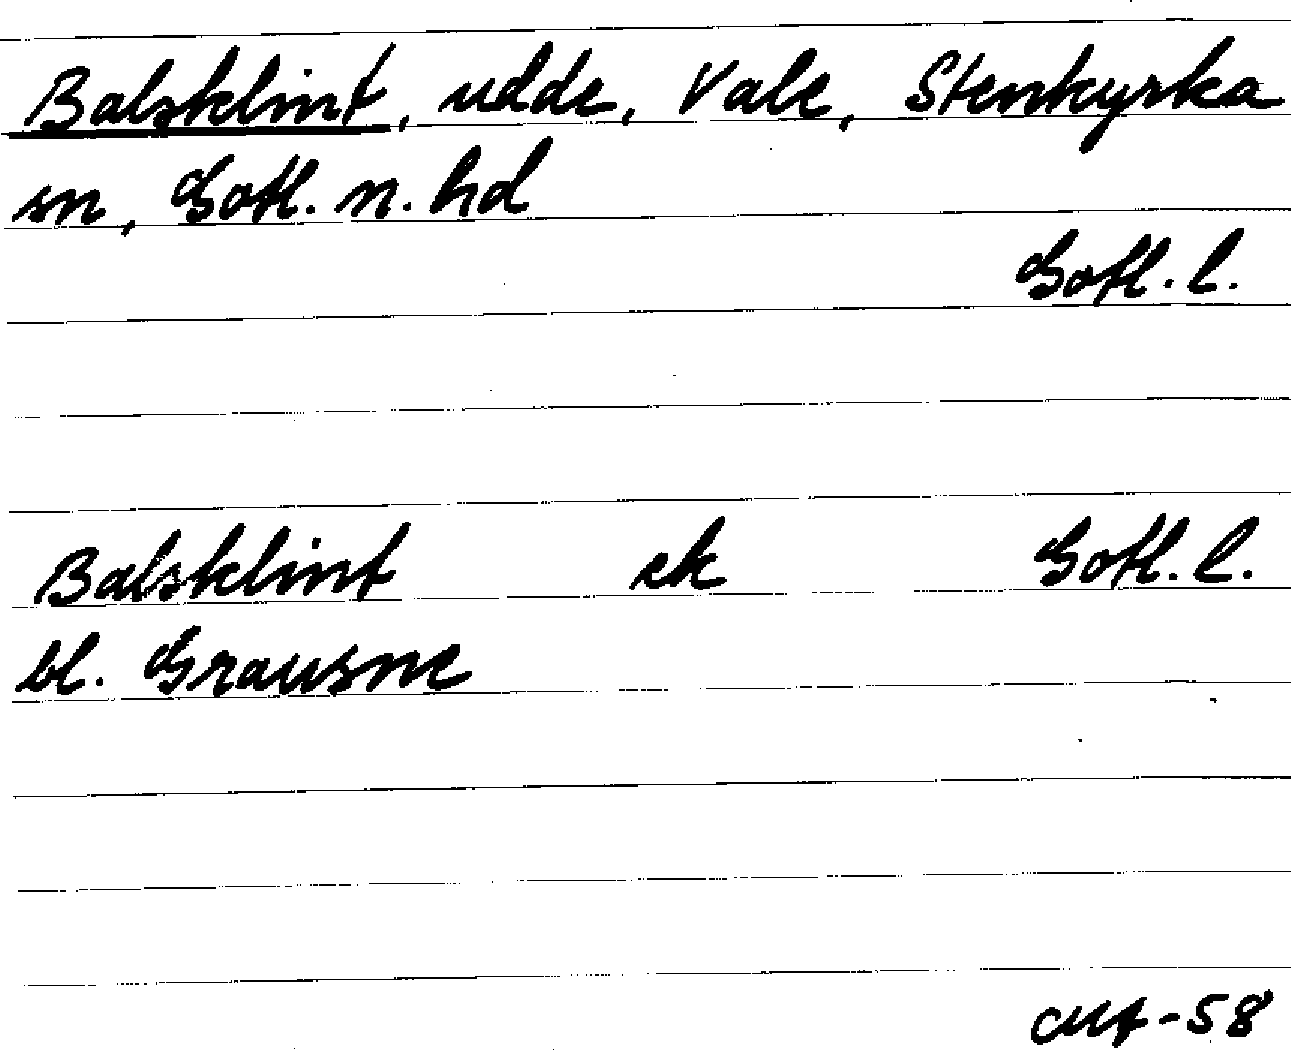 Balsklint, udde, Vale, Stenkyrka
sn, Gotl. n. hd
Gotl. l.
Balsklint ek Gotl. l.
bl. Grausne
-58